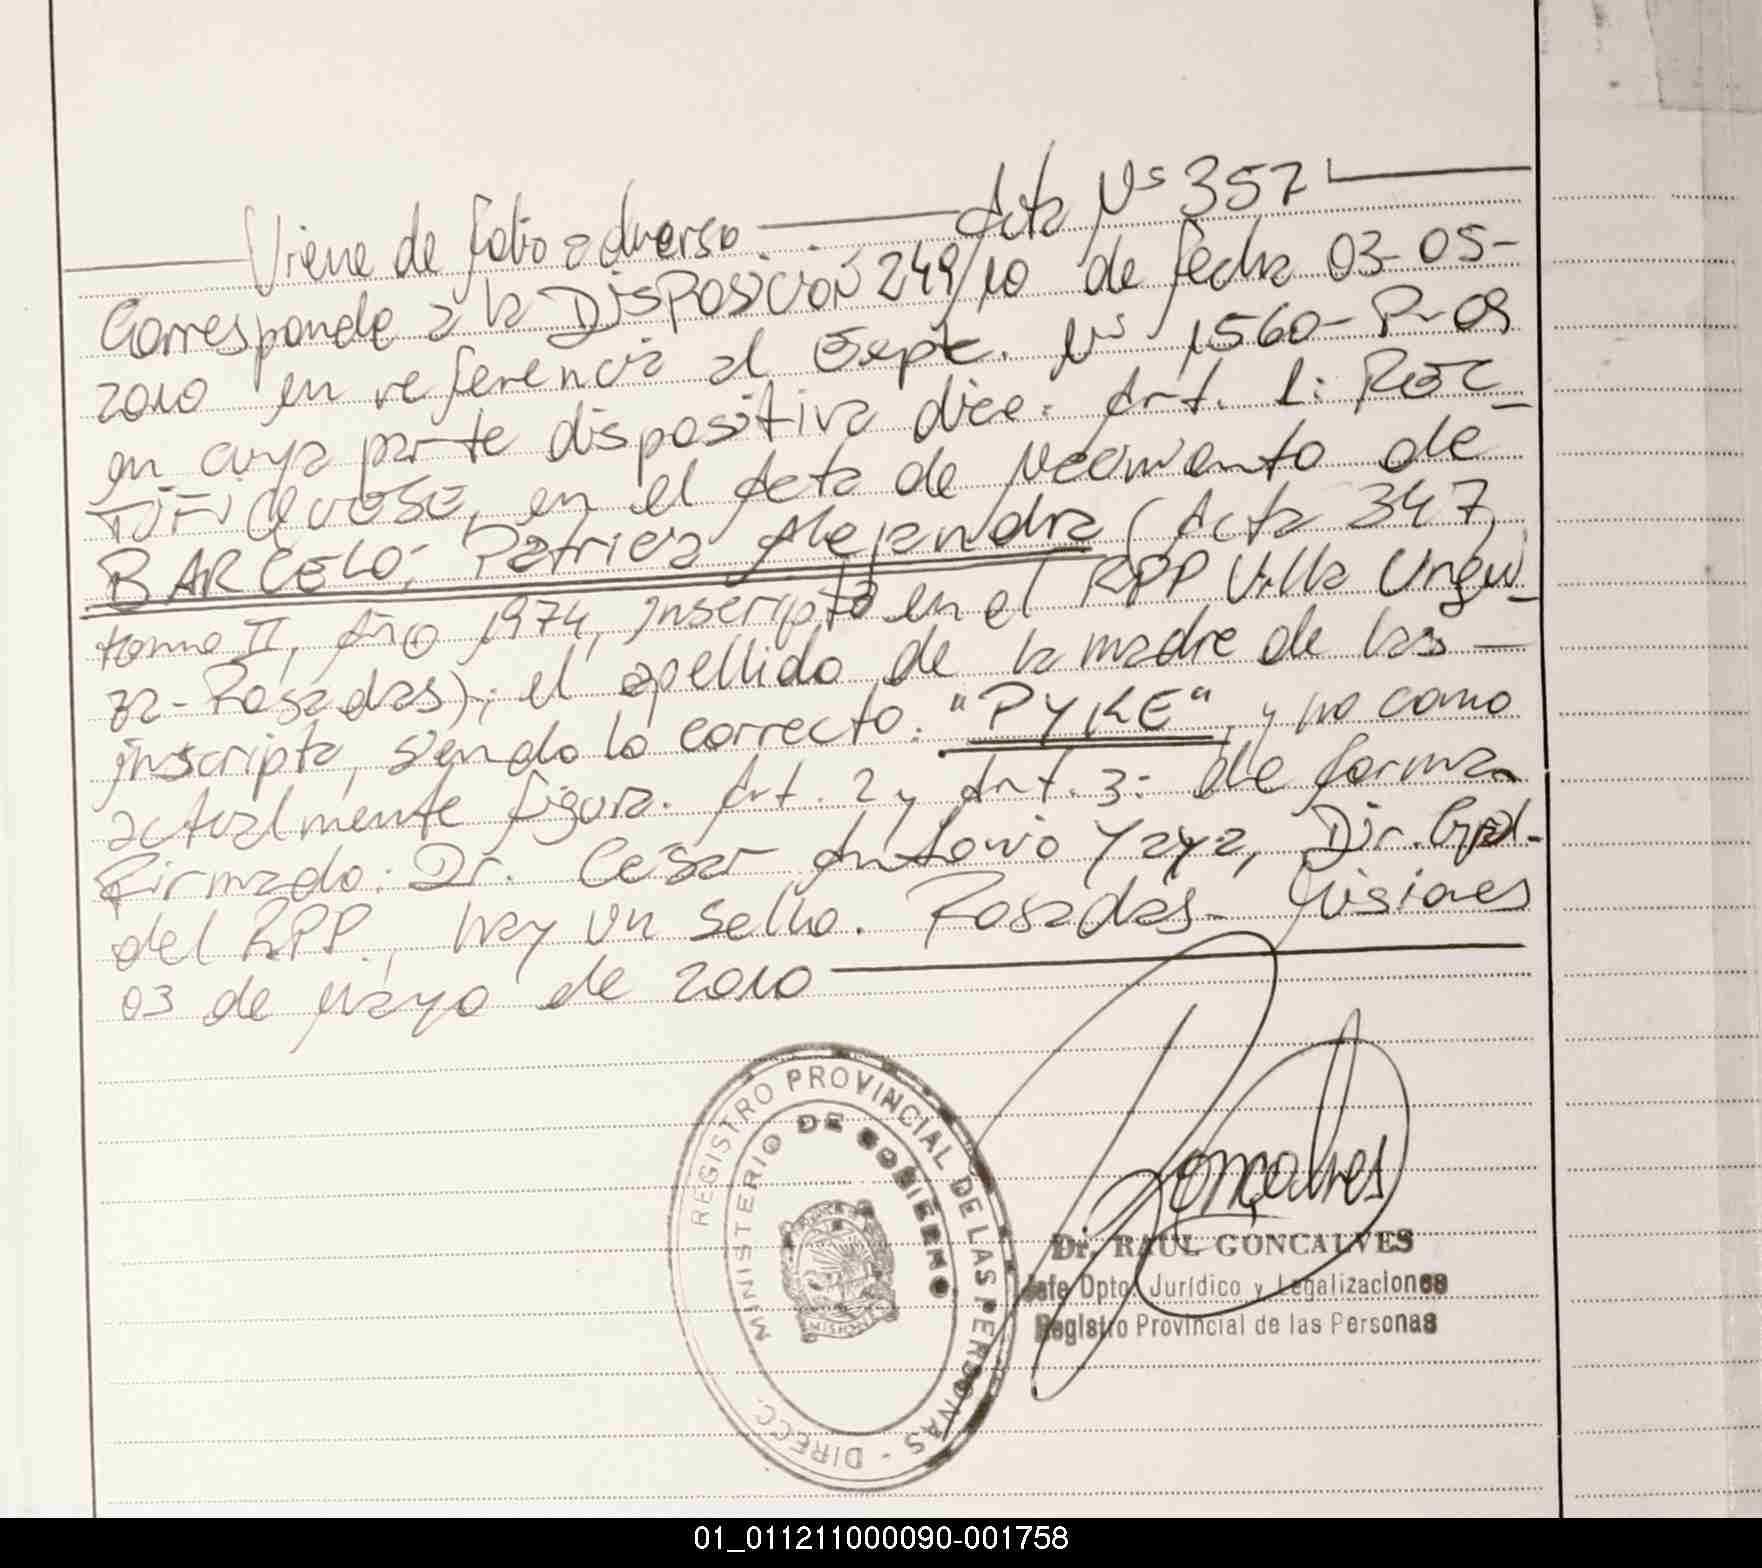 Viene de folio adverso. Acta Nº 357
Corresponde a la DISPOSICION 249/10 de fecha 03-05-
2010 en referencia al Expte. Nº 1560-P-09
en cuya parte dispositiva dice: Art. 1: REC
TIFIQUESE, en el Acta de Nacimiento de
BARCELO, Patricia Alejandra (Acta 347,
tomo II, Año 1974, inscripta en el RPP Villa Urqui
za-Posadas); el apellido de la madre de las
inscripta, siendo lo correcto: "PYKE", y no como
actualmente figura. Art. 2 y Art. 3: de forma.
Firmado: Dr. Cesar Antonio Yaya, Dir. Gral.
del RPP., hay un sello. Posadas- Misiones
03 de Mayo de 2010
REGISTRO PROVINCIAL DE LAS PERSONAS - DIRECC.
MINISTERIO DE GOBIERNO
MISIONES
Goncalves
Dr. RAUL GONCALVES
Jefe Dpto. Jurídico y Legalizaciones
Registro Provincial de las Personas
01_011211000090-001758